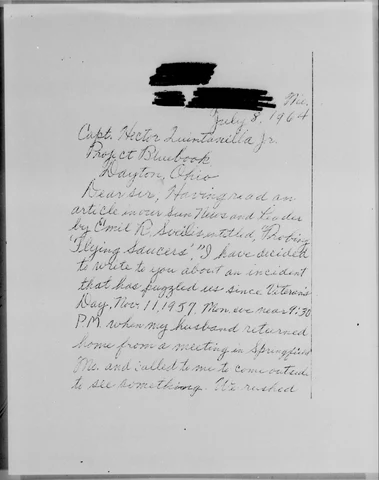 Mo.
July 8, 1964
Capt. Hector Quintanilla Jr.
Project Bluebook
Dayton, Ohio
Dear sir, Having read an
article in our Sun. News and Leader
by Emit R. entitled, Probing
"Flying Saucers", I have decided
to write to you about an incident
that has puzzled us since Veteran's
Day, Nov. 11, 1957. Mon eve near 9:30
P.M. when my husband returned
home from a meeting in Springfield
Mo. and called to me to come outside
to see something. We rushed